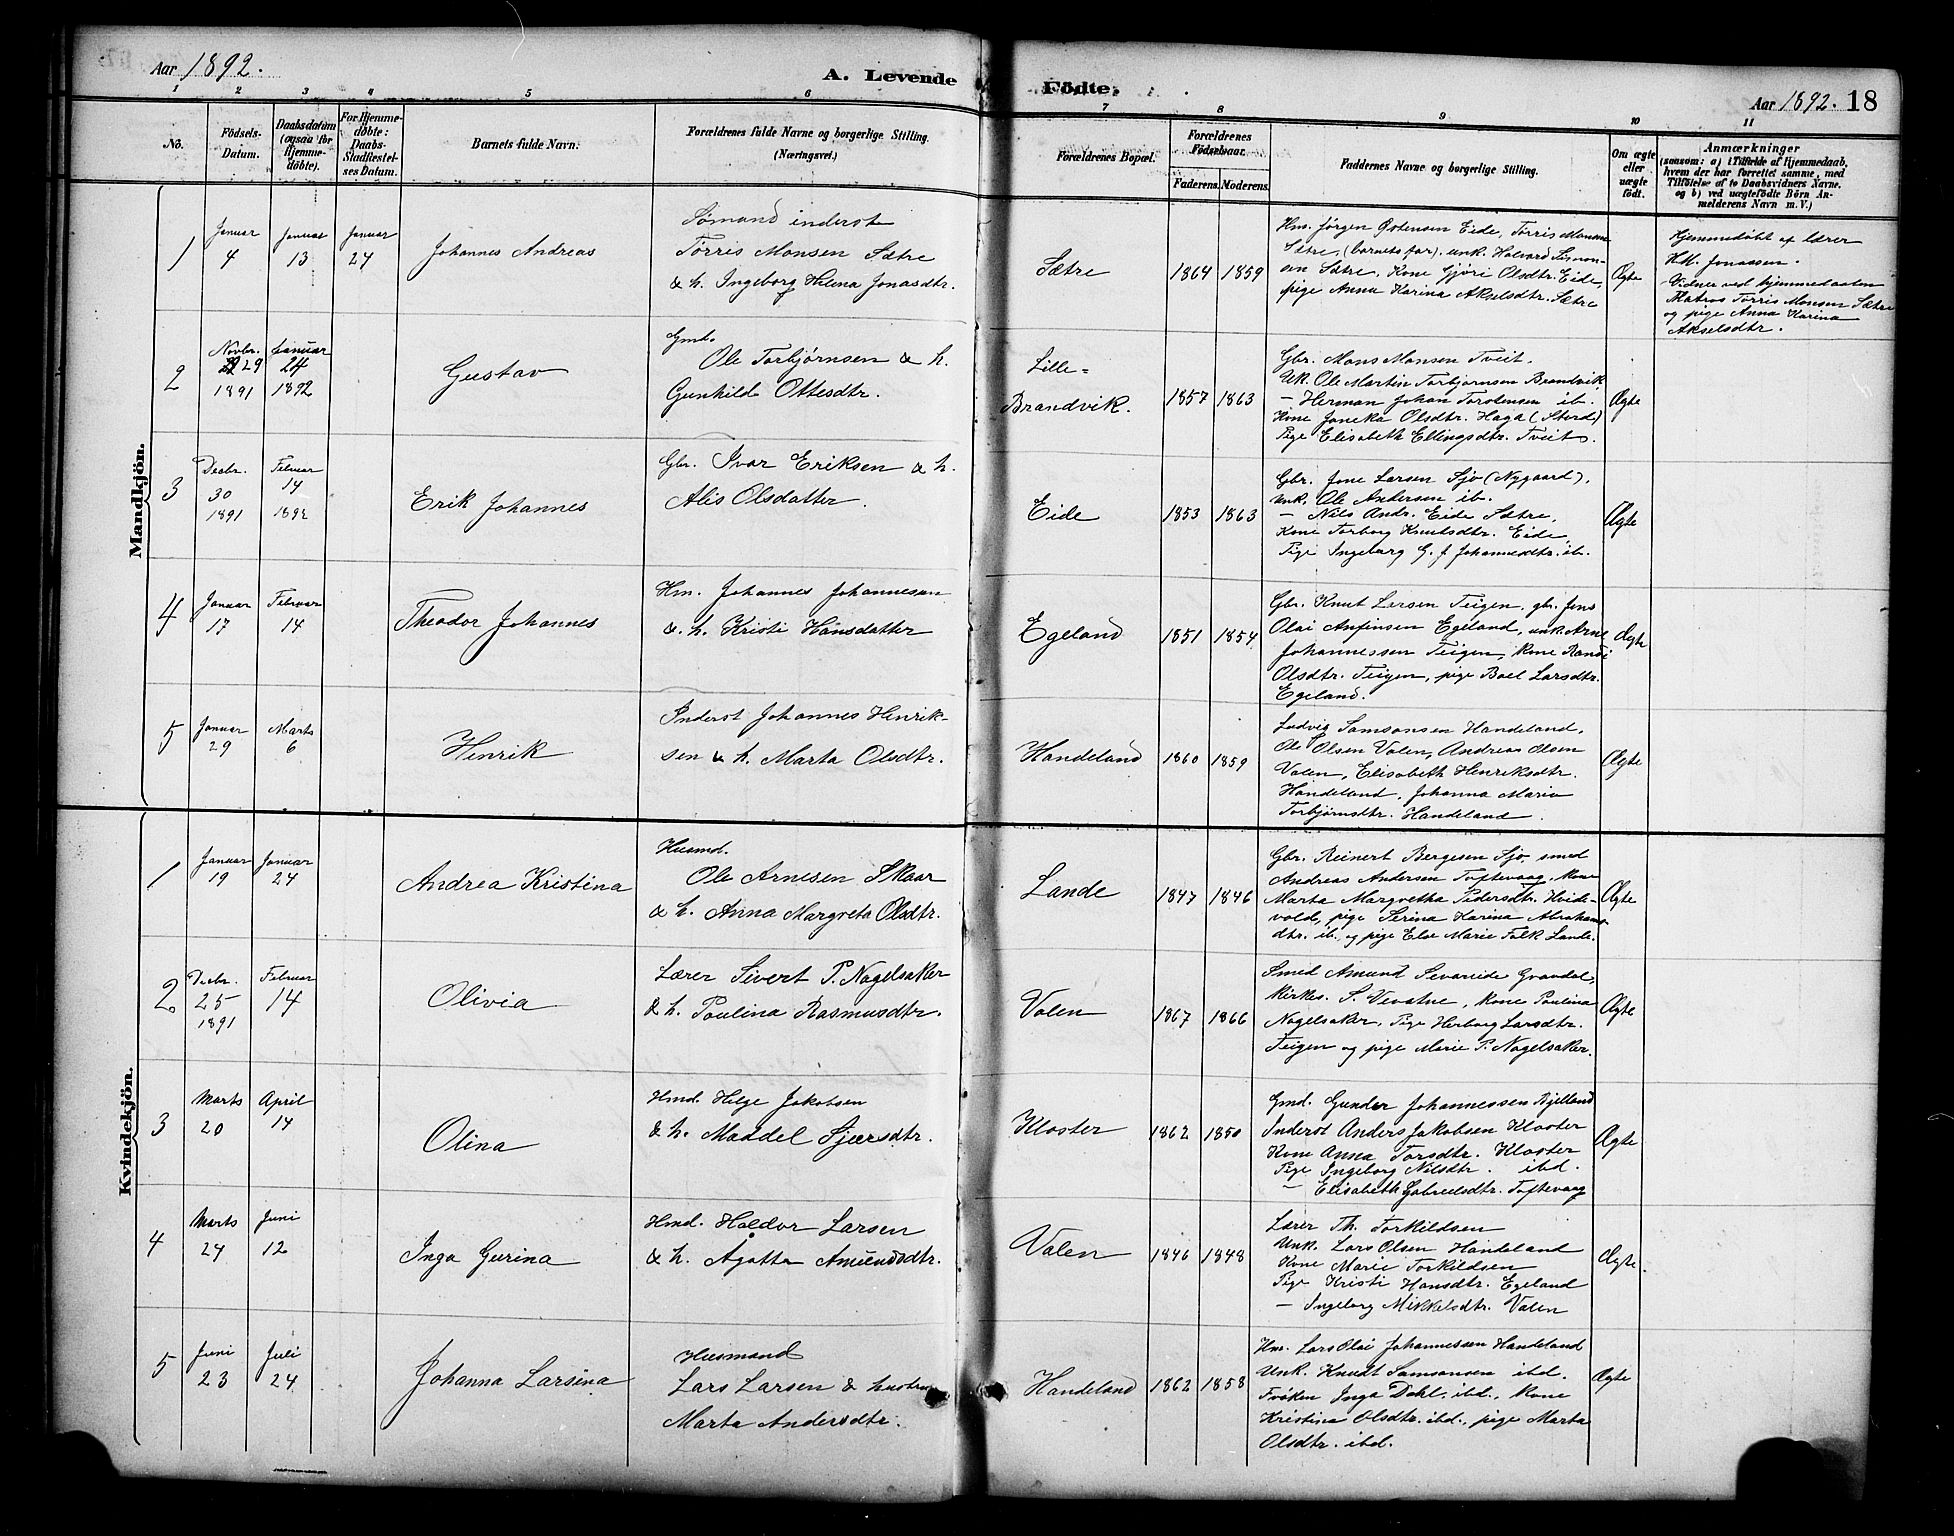 Aar 1892.
A. Levende Födte.
Aar 1892. 18
1 2 3 4 5 6 7 8 9 10 11
No.
Födsels-
Datum.
Daabsdatum
(ogsaa for
Hjemme-
döbte).
For Hjemme-
döbte:
Daabs-
Stadfæstel-
ses Datum.
Barnets fulde Navn.
Forældrenes fulde Navne og borgerlige Stilling.
(Næringsvei.)
Forældrenes Bopæl.
Forældrenes
Födselsaar.
Faderens. Moderens.
Faddernes Navne og borgerlige Stilling.
Om ægte
eller
uægte
födt.
Anmærkninger
(saasom: a) i Tilfælde af Hjemmedaab,
hvem der har forrettet samme, med
Tilföielse af to Daabsvidners Navne.
og b) ved uægtefödte Börn An-
melderens Navn m. V.)
Mandkjön.
1
Januar
4
Januar
13
Januar
24
Johannes Andreas
Sømand inderst
Tørris Monsen Sætre
& h. Ingeborg Helena Jonasdtr.
Sætre
1864 1859
Hm. Jørgen Østensen Eide, Tørris Monsen
Sætre, (barnets far), unk. Halvard Simon-
sen Sætre, Kone Gjøri Olsdtr. Eide,
pige Anna Karina Akselsdtr. Sætre
Ægte
Hjemmedøbt af lærer
H.M. Jonassen.
Vidner ved hjemmedaaben
Matros Tørris Monsen Sætre
og pige Anna Karina
Akselsdtr.
2
Novbr.
29
1891
Januar
24
1892
Gustav
Gmd.
Ole Torbjørnsen & h.
Gunhild Ottesdtr.
Lille=
Brandvik.
1857 1863
Gbr. Mons Monsen Tveit.
Uk. Ole Martin Torbjørnsen Brandvik
— Herman Johan Torstensen ib.
Kone Joneka Olsdtr. Haga (Stord)
Pige Elisabeth Ellingsdtr. Tveit.
Ægte
3
Decbr.
30
1891
Februar
14
1892
Erik Johannes
Gbr. Ivar Eriksen & h.
Alis Olsdatter.
Eide
1853 1863
Gbr. Jone Larsen Sjo (Nygaard),
unk. Ole Andersen ib.
— Nils Andr. Eide Sætre,
Kone Torborg Knutsdtr. Eide,
Pige Ingeborg G. J. Johannesdtr. ib.
Ægte
4
Januar
17
Februar
14
Theodor Johannes
Hm. Johannes Johannesen
& h. Kristi Hansdatter
Egeland
1851 1854
Gbr. Knut Larsen Teigen, gbr. Jens
Olai Anfinsen Egeland, unk. Arne
Johannessen Teigen, Kone Randi
Olsdtr. Teigen, pige Boel Larsdtr.
Egeland.
Ægte
5
Januar
29
Marts
6
Henrik
Inderst Johannes Henrik-
sen & h. Marta Olsdtr.
Handeland
1860 1859
Ludvig Samsonsen Handeland,
Ole Olsen Valen, Andreas Olsen
Valen, Elisabeth Henriksdtr.
Handeland, Johanna Maria
Torbjørnsdtr. Handeland.
Ægte
Kvindekjön.
1
Januar
19
Januar
24
Andrea Kristina
Husmd.
Ole Arnesen Skaar
& h. Anna Margreta Olsdtr.
Lande
1847 1846
Gbr. Reinert Bergesen Sjo, smed
Andreas Andersen Toftevaag, Kone
Marta Margretha Pedersdtr. Hvide-
vold, pige Serina Karina Abrahams-
dtr. ib. og pige Else Marie Falk Lande.
Ægte
2
Decbr.
25
1891
Februar
14
Olivia
Lærer Sivert P. Nagelsaker
& h. Paulina Rasmusdtr.
Valen
1867 1866
Smed Amund Sevareide Gravdal,
Kirkes. S. Vevatne, Kone Paulina
Nagelsaker, Pige Herborg Larsdtr.
Teigen og pige Marie P. Nagelsaker.
Ægte
3
Marts
20
April
14
Olina
Hmd. Helge Jakobsen
& h. Maddel Sjursdtr.
Kloster
1862 1850
Gmd. Gunder Johannessen Kjelland
Inderst Anders Jakobsen Kloster
Kone Anna Torsdtr. Kloster
Pige Ingeborg Nilsdtr. ibd.
— Elisabeth Gabrielsdtr. Toftevaag
Ægte
4
Marts
24
Juni
12
Inga Gurina
Hmd. Haldor Larsen
& h. Ågatha Amundsdtr.
Valen
1846 1848
Lærer Th. Torkildsen
Unk. Lars Olsen Handeland
Kone Marie Torkildsen
Pige Kristi Hansdtr. Egeland
— Ingeborg Mikkelsdtr. Valen
Ægte
5
Juni
23
Juli
24
Johanna Larsina
Husmand
Lars Larsen & hustru
Marta Andersdtr.
Handeland
1862 1858
Hm. Lars Olai Johannessen Handeland
Unk. Knudt Samsonsen ibd.
Frøken Inga Dahl, ibd., Kone
Kristina Olsdtr. ibd., pige Marta
Olsdtr. ibd.
Ægte